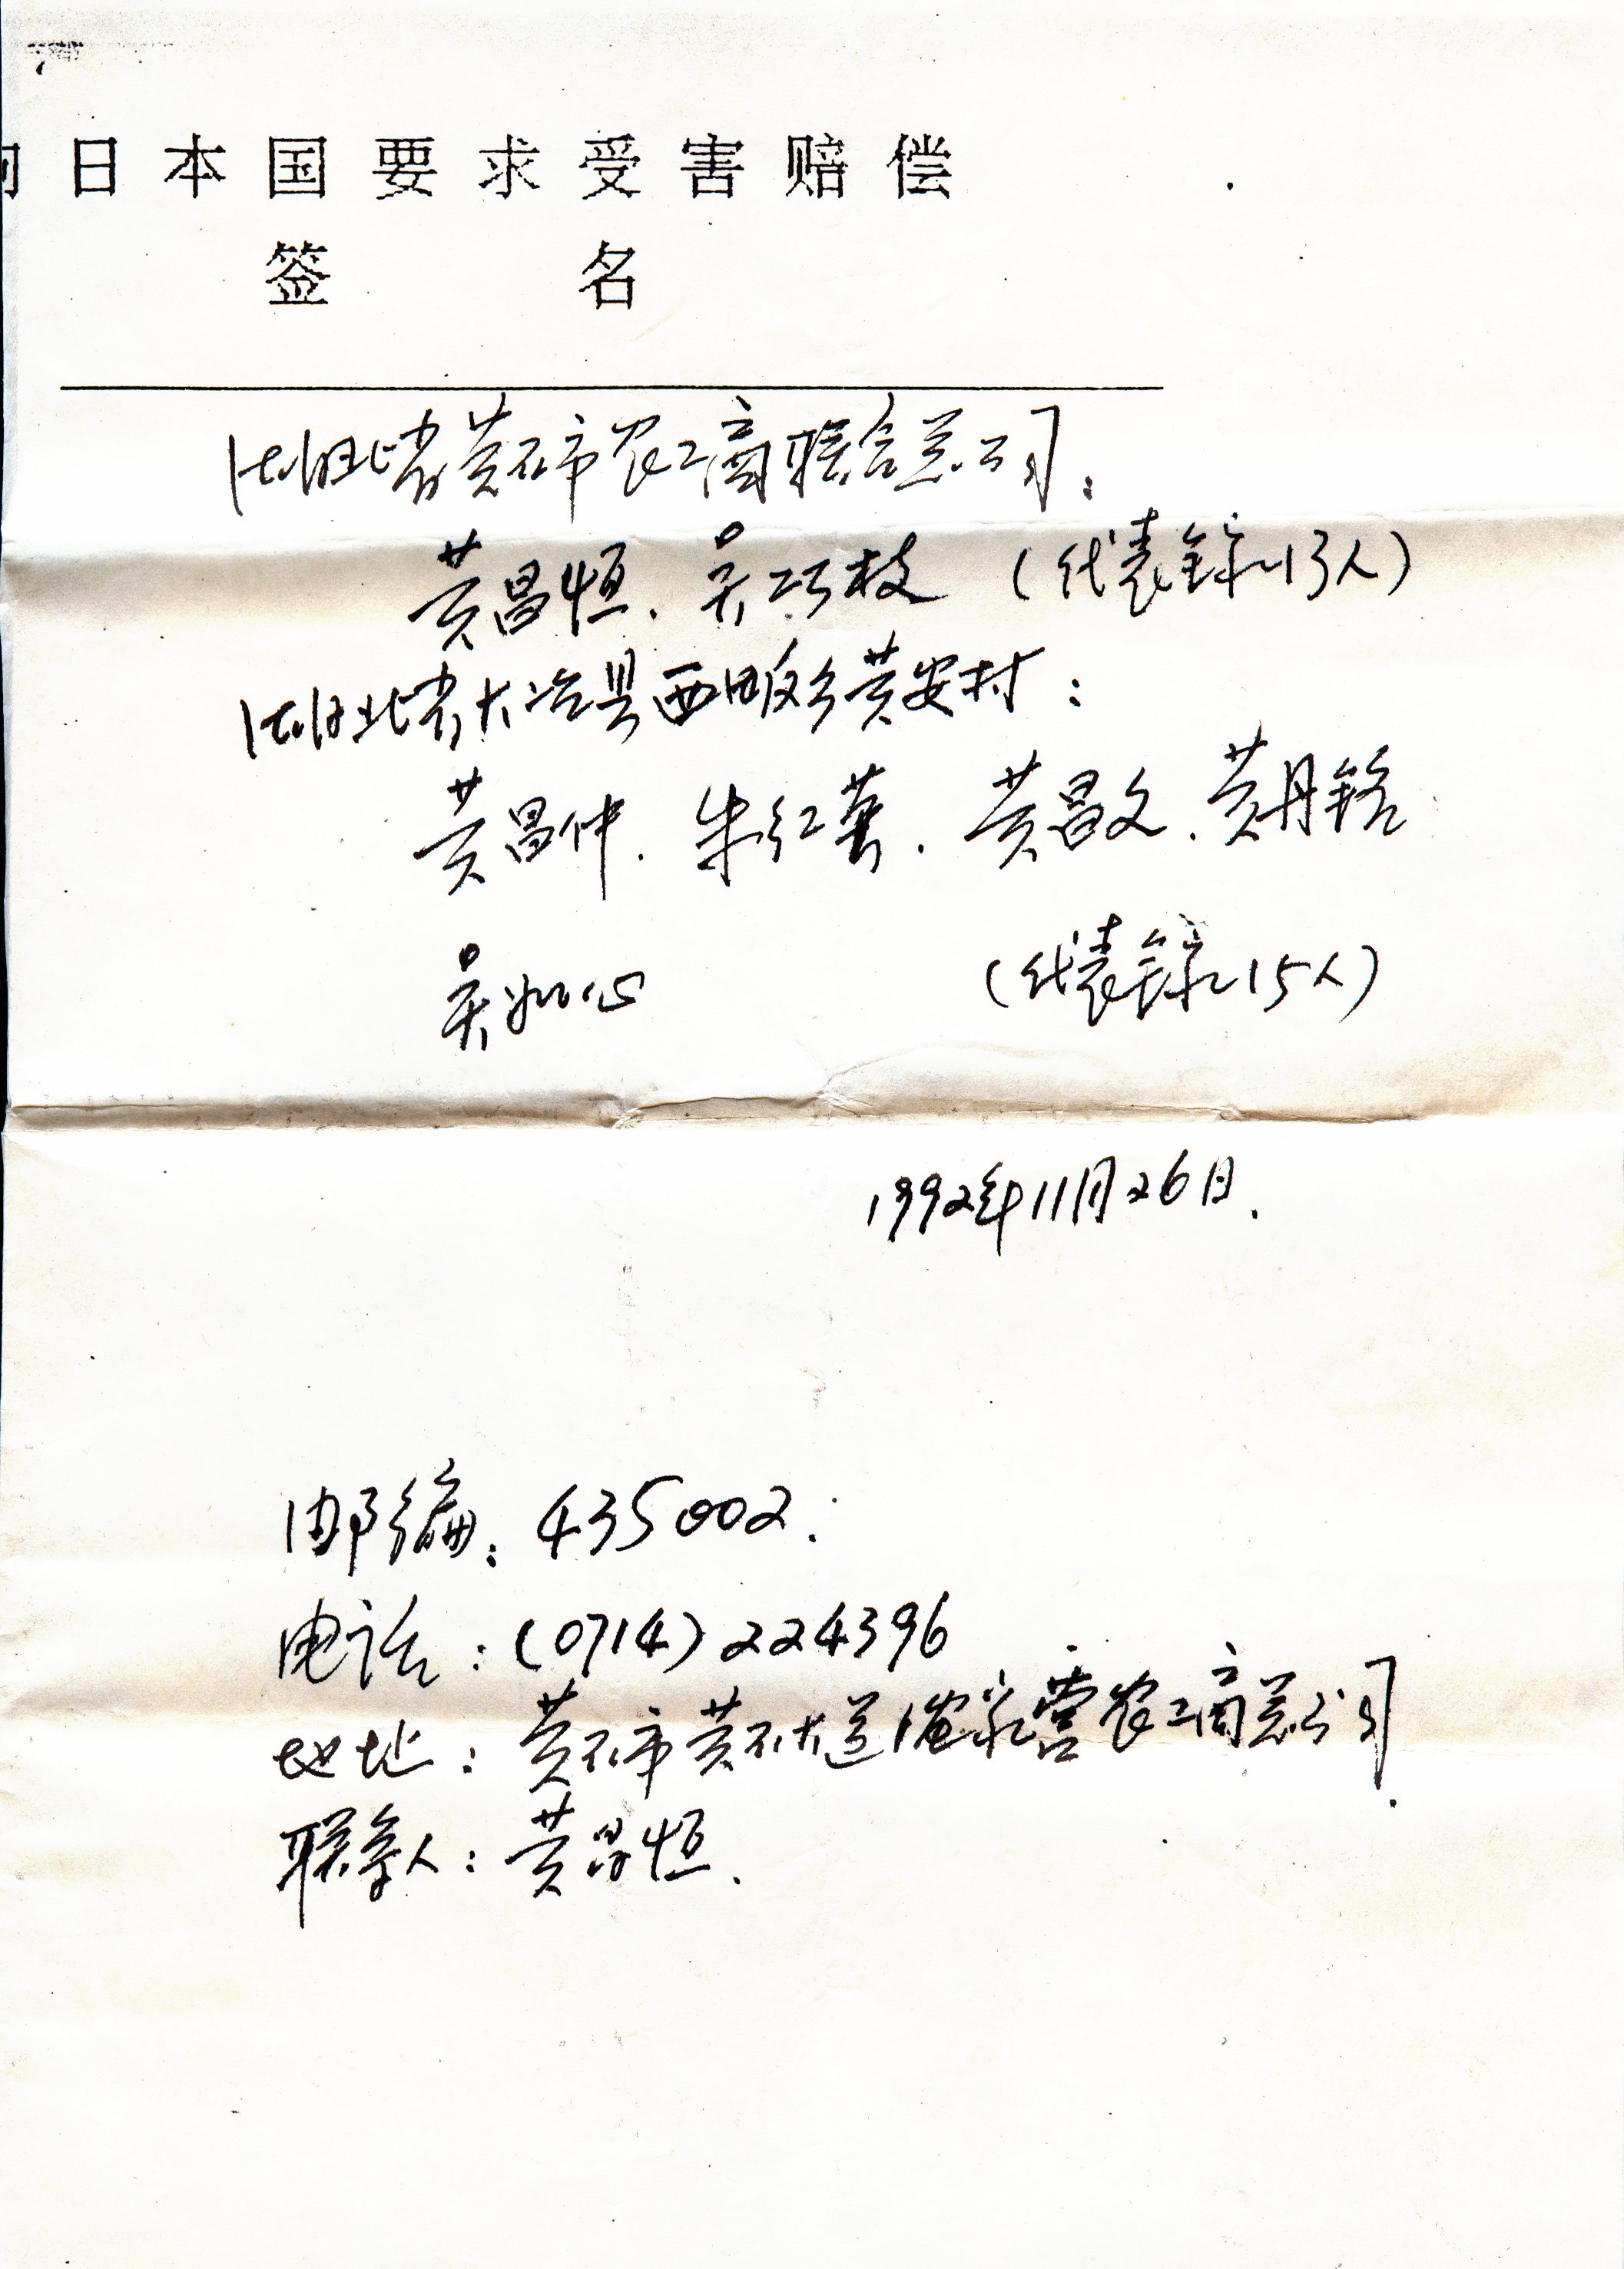 向日本国要求受害赔偿
签 名
湖北省黄石市农工商联合总公司：
黄昌恒、吴巧枝 (代表全家13人)
湖北省大冶县西畈乡黄安村：
黄昌仲、朱红英、黄昌文、黄丹铭
吴如心 (代表全家15人)
1992年11月26日.
邮编：435002.
电话：(0714) 224396
地址：黄石市黄石大道 农工商总公司.
联系人：黄昌恒.